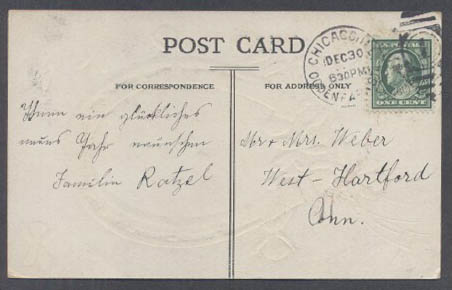 POST CARD
CHICAGO, ILL
DEC 30
830 PM
FOR CORRESPONDENCE
FOR ADDRESS ONLY
ONE CENT
ein glückliches
neues Jahr wünschen
Familie Ratzel
Mr & Mrs. Weber
West-Hartford
Conn.